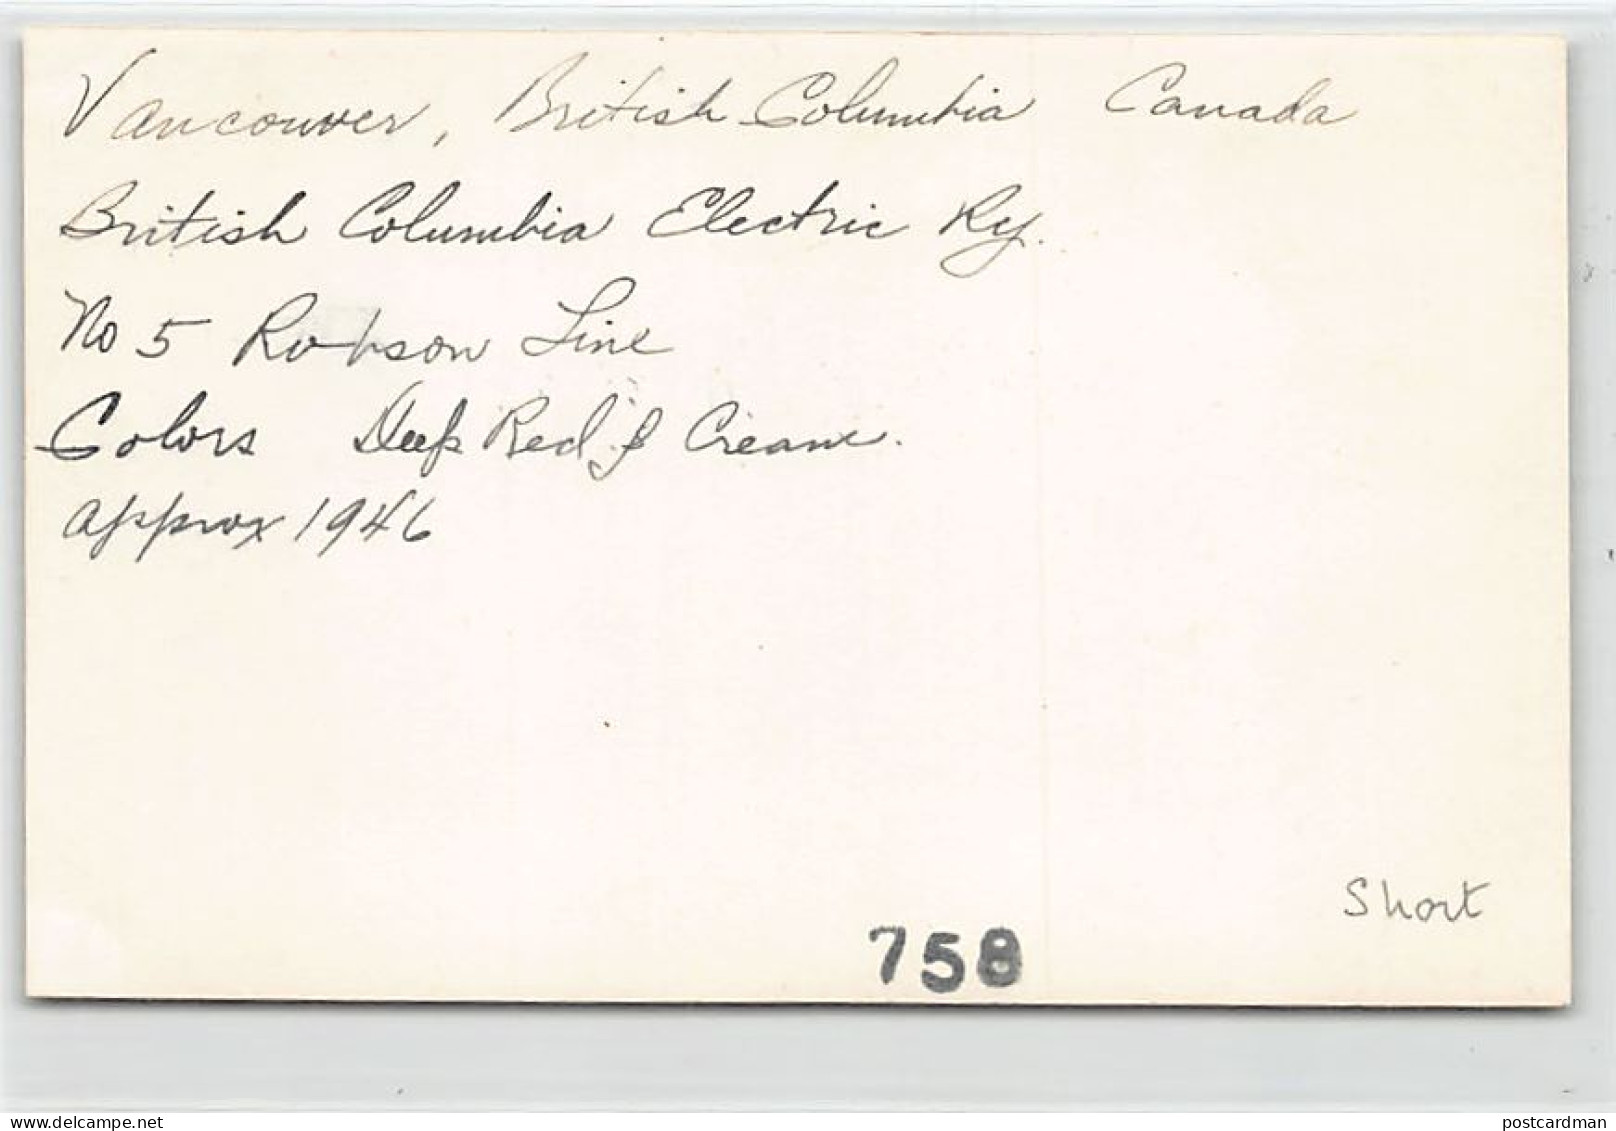 Vancouver, British Columbia Canada
British Columbia Electric Ry.
No 5 Robson Line
Colors Deep Red & Cream.
approx 1946
Short
758
delcampe.net
postcardman